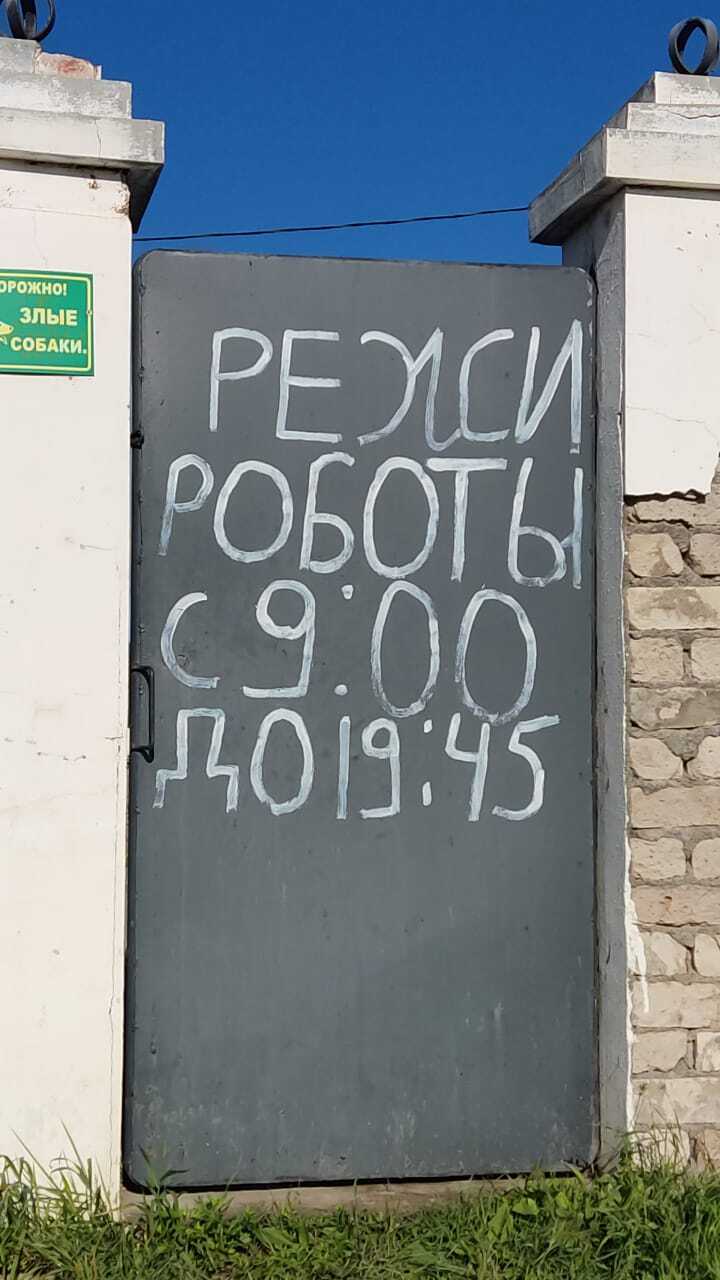 ОРОЖНО!
ЗЛЫЕ
СОБАКИ.
РЕЖИ
РОБОТЫ
С 9:00
ДО 19:45